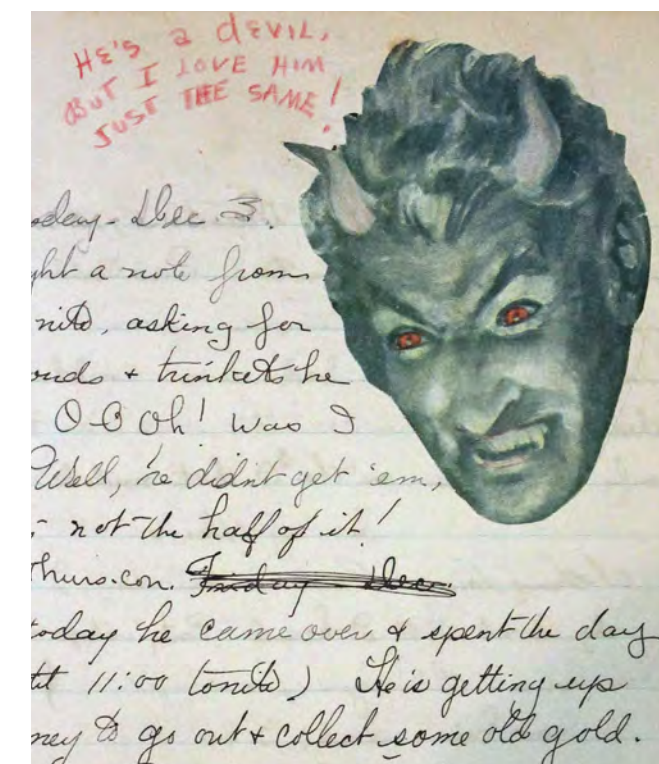 HE'S a dEVIL,
BUT I LOVE HIM
JUST THE SAME!
sday - Dec 3.
ght a note from
nite, asking for
& trinkets he
O-O Oh! was I
Well, he didn't get 'em,
- not the half of it!
Thurs. con. Friday - Dec.
today he came over & spent the day
til 11:00 tonite) He is getting up
ney to go out & collect some old gold.